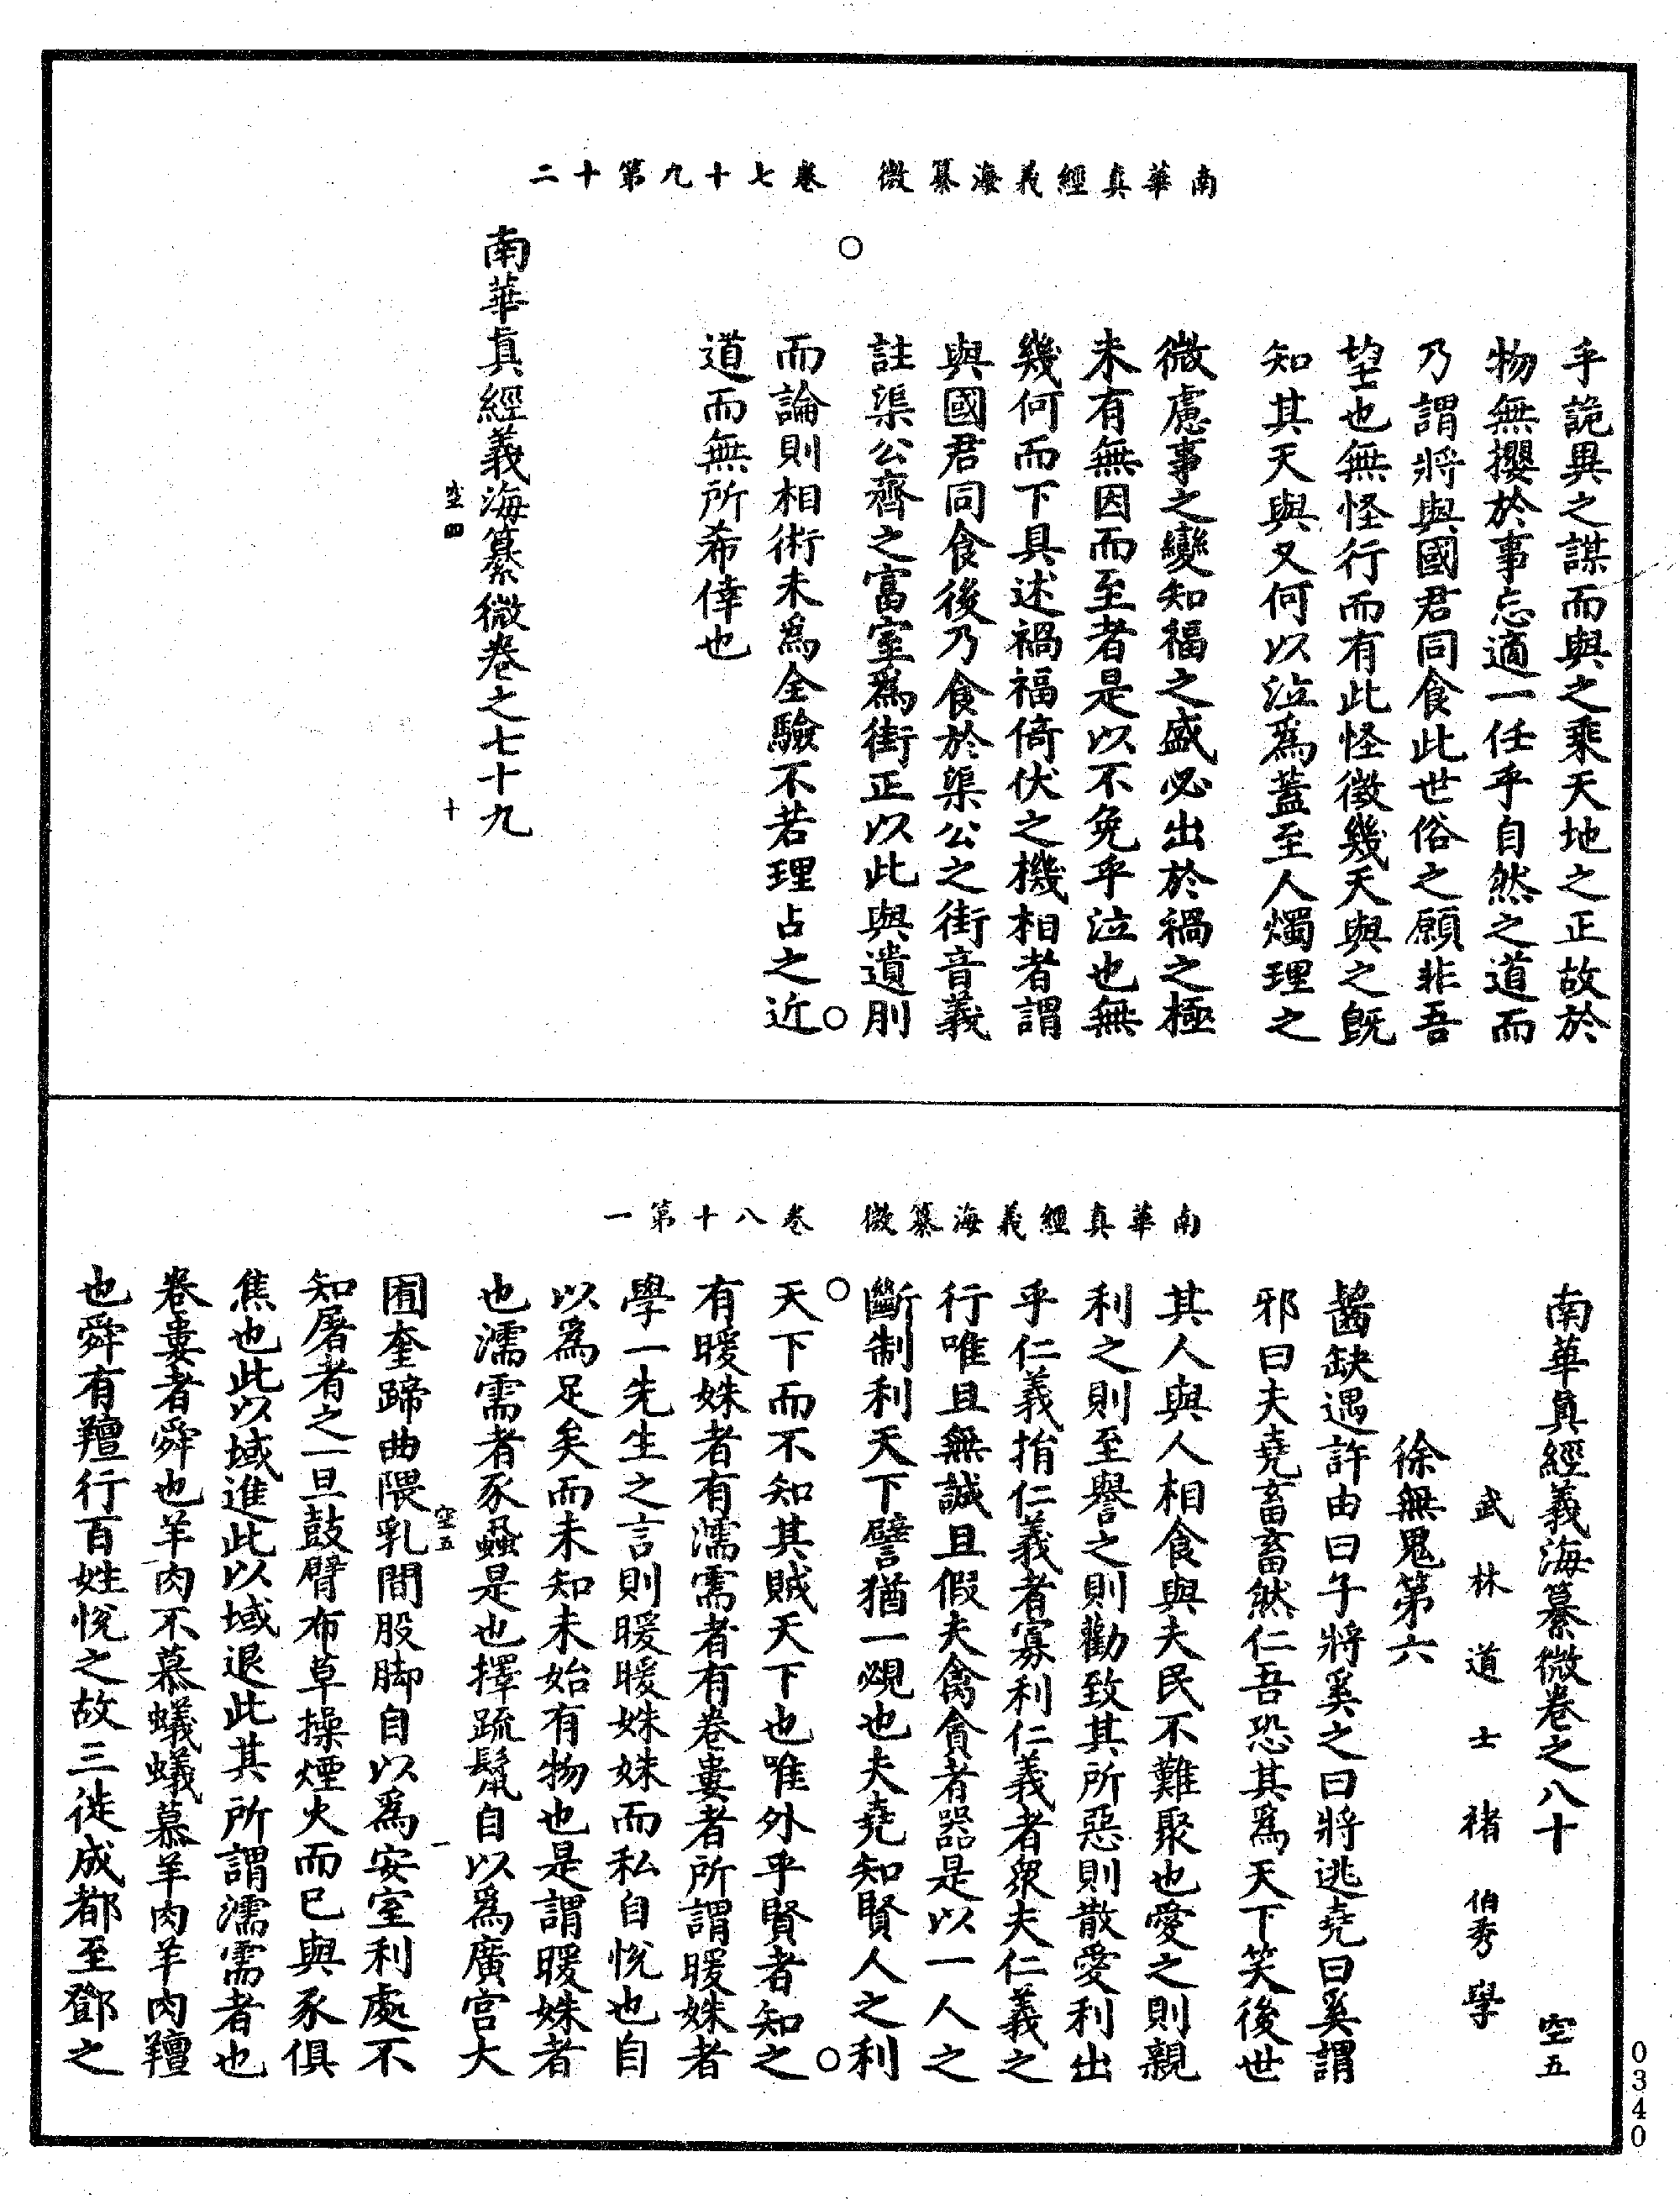 南華真經義海纂微　卷七十九第十二
乎詭異之謀而與之乘天地之正故於
物無攖於事忘適一任乎自然之道而
乃謂將與國君同食此世俗之願非吾
望也無怪行而有此怪徵幾天與之既
知其天與又何以泣爲蓋至人燭理之
微慮事之變知福之盛必出於禍之極
未有無因而至者是以不免乎泣也無
幾何而下具述禍福倚伏之機相者謂
與國君同食後乃食於渠公之街音義
註渠公齊之富室爲街正以此與遺刖
而論則相術未爲全驗不若理占之近
道而無所希倖也
空四
十
南華真經義海纂微卷之七十九
南華真經義海纂微　卷八十第一
南華真經義海纂微卷之八十　空五
武林道士褚伯秀學
徐無鬼第六
齧缺遇許由曰子將奚之曰將逃堯曰奚謂
邪曰夫堯畜畜然仁吾恐其爲天下笑後世
其人與人相食與夫民不難聚也愛之則親
利之則至譽之則勸致其所惡則散愛利出
乎仁義捐仁義者寡利仁義者衆夫仁義之
行唯且無誠且假夫禽貪者器是以一人之
斷制利天下譬猶一覕也夫堯知賢人之利
天下而不知其賊天下也唯外乎賢者知之
有暖姝者有濡需者有卷婁者所謂暖姝者
學一先生之言則暖暖姝姝而私自悅也自
以爲足矣而未知未始有物也是謂暖姝者
也濡需者豕蝨是也擇疏鬣自以爲廣宮大
空五
一
囿奎蹄曲隈乳間股脚自以爲安室利處不
知屠者之一旦鼓臂布草操煙火而已與豕俱
焦也此以域進此以域退此其所謂濡需者也
卷婁者舜也羊肉不慕蟻蟻慕羊肉羊肉羶
也舜有羶行百姓悅之故三徙成都至鄧之
0340